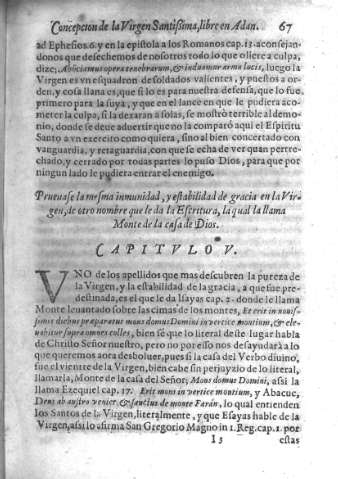 Concepcion de la Virgen Santissima, libre en Adan. 67
ad Ephesios.6.y en la epistola a los Romanos cap.13.aconsejan-
donos que desechemos de nosotros todo lo que oliere a culpa,
dize; Abijciamus opera tenebrarum, & induamur arma lucis, luego la
Virgen es vn esquadron de soldados valientes, y puestos a or-
den, y cosa llana es, que si lo es para nuestra defensa, que lo fue
primero para la suya, y que en el lance en que le pudiera aco-
meter la culpa, si la dexaran a solas, se mostrò terrible al demo-
nio, donde se deve aduertir que no la comparò aqui el Espiritu
Santo a vn exercito como quiera, sino al bien concertado con
vanguardia, y retaguardia, con que se echa de ver quan pertre-
chado, y cerrado por todas partes lo puso Dios, para que por
ningun lado le pudiera entrar el enemigo.
Prueuase la mesma inmunidad, y estabilidad de gracia en la Vir-
gen, de otro nombre que le da la Escritura, la qual la llama
Monte de la casa de Dios.
CAPITVLO V.
VNO de los apellidos que mas descubren la pureza de
la Virgen, y la estabilidad de la gracia, a que fue pre-
destinada, es el que le da Isayas cap.2. donde le llama
Monte leuantado sobre las cimas de los montes, Et erit in nouis-
simis diebus præparatus mons domus Domini in vertice montium, & ele-
uabitur supra omnes colles, bien sè que lo literal deste lugar habla
de Christo Señor nuestro, pero no por esso nos desayudarà a lo
que queremos aora desboluer, pues si la casa del Verbo diuino,
fue el vientre de la Virgen, bien cabe sin perjuyzio de lo literal,
llamarla, Monte de la casa del Señor, Mons domus Domini, assi la
llama Ezequiel cap.17. Erit mons in vertice montium, y Abacuc,
Deus ab austro veniet, & sanctus de monte Farán, lo qual entienden
los Santos de la Virgen, literalmente, y que Esayas hable de la
Virgen, assi lo afirma San Gregorio Magno in 1.Reg.cap.1. por
I 3 estas